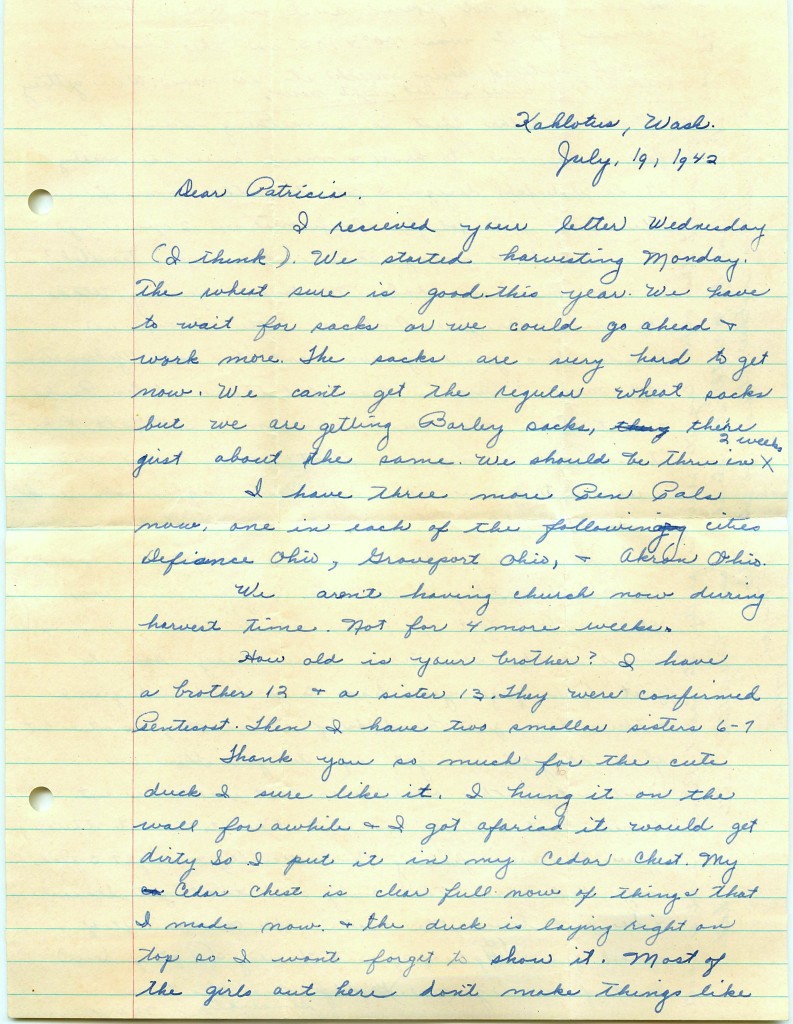 Kahlotus, Wash.
July, 19, 1942
Dear Patricia.
I recieved your letter Wednesday
(I think). We started harvesting Monday.
The wheat sure is good this year. We have
to wait for sacks or we could go ahead +
work more. The sacks are very hard to get
now. We can't get the regular wheat sacks
but we are getting Barley sacks, they there
2 weeks
gist about the same. We should be thru in X
I have three more Pen Pals
now, one in each of the following cities
Defiance Ohio, Groveport Ohio, + Akron Ohio.
We aren't having church now during
harvest time. Not for 4 more weeks.
How old is your brother? I have
a brother 12 + a sister 13. They were confirmed
Pentecost. Then I have two smaller sisters 6-7
Thank you so much for the cute
duck I sure like it. I hung it on the
wall for awhile + I got afariad it would get
dirty So I put it in my Cedar Chest. My
Cedar Chest is clear full now of things that
I made now. + the duck is laying right on
top so I wont forget to show it. Most of
the girls out here don't make things like